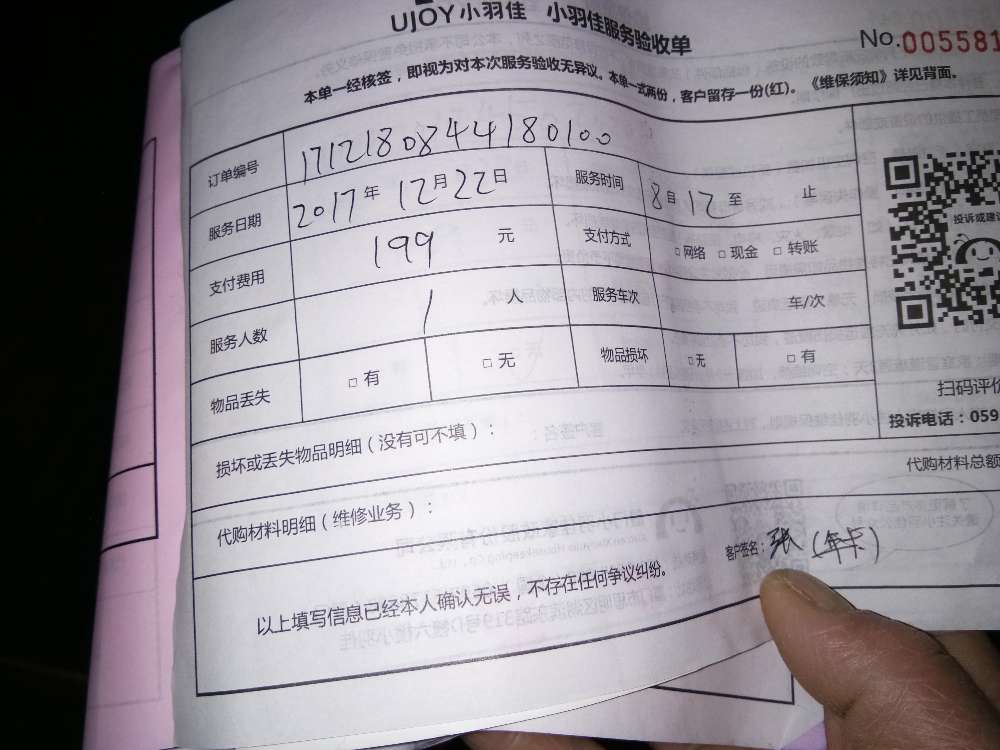 UJOY小羽佳 小羽佳服务验收单
No.005581
本单一经核签，即视为对本次服务验收无异议。本单一式两份，客户留存一份(红)。《维保须知》详见背面。
订单编号 1712180844180100
服务日期 2017年12月22日 服务时间 8自12至 止
支付费用 199 元 支付方式 □网络 □现金 □转账
服务人数 1 人 服务车次 车/次
物品丢失 □有 □无 物品损坏 □无 □有
投诉或建议
扫码评价
投诉电话：059
损坏或丢失物品明细（没有可不填）：
代购材料总额
代购材料明细（维修业务）：
以上填写信息已经本人确认无误，不存在任何争议纠纷。
客户签名：张（年卡）